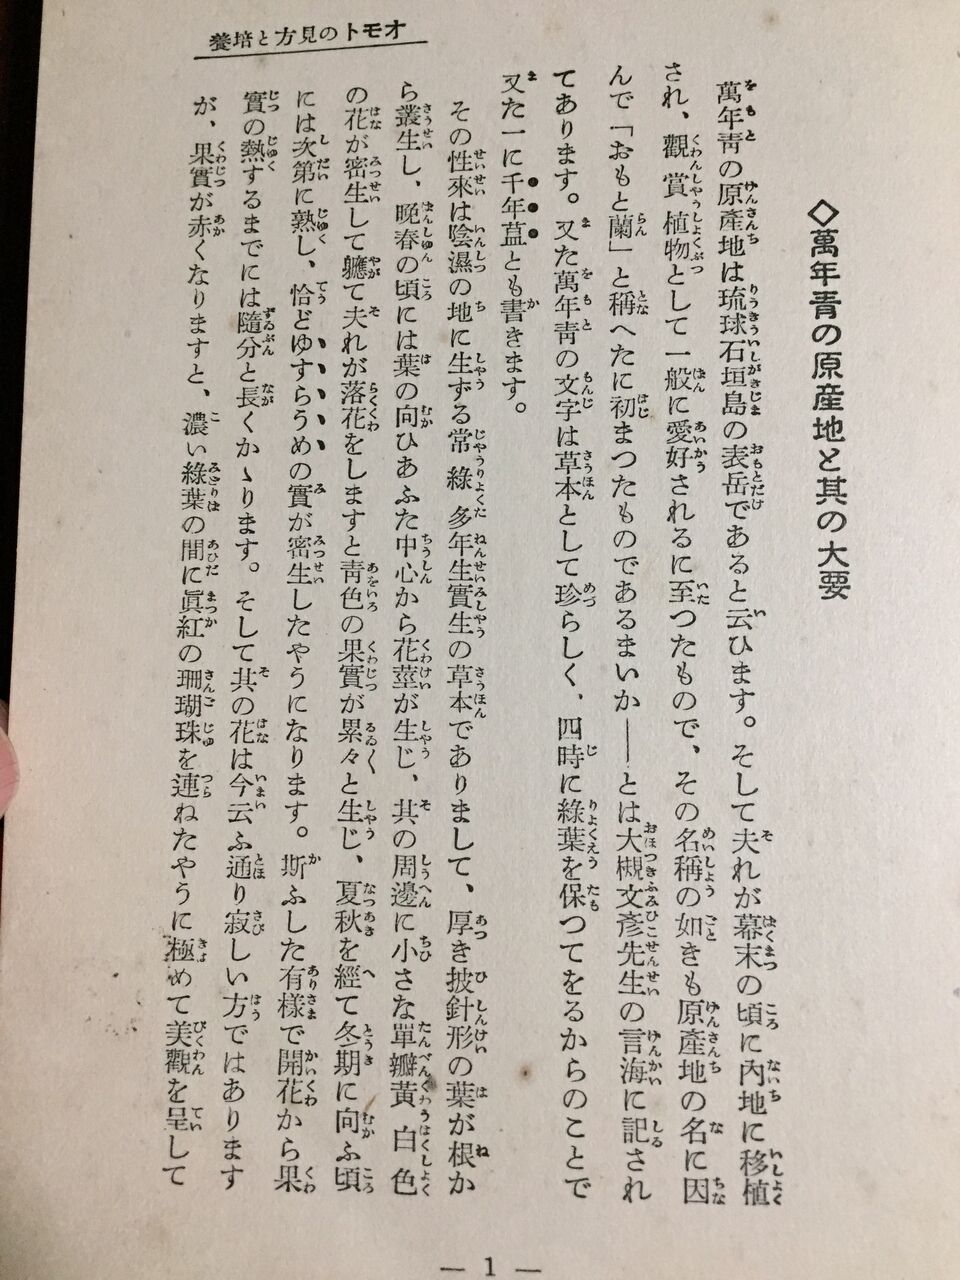 養培と方見のトモオ
◇萬年靑の原產地と其の大要
萬年靑の原產地は琉球石垣島の表岳であると云ひます。そして夫れが幕末の頃に內地に移植
され、觀賞植物として一般に愛好されるに至つたもので、その名稱の如きも原產地の名に因
んで「おもと蘭」と稱へたに初まつたものであるまいか――とは大槻文彥先生の言海に記され
てあります。又た萬年靑の文字は草本として珍らしく、四時に綠葉を保つてをるからのことで
又た一に千年蒀とも書きます。
その性來は陰濕の地に生ずる常綠多年生實生の草本でありまして、厚き披針形の葉が根か
ら叢生し、晩春の頃には葉の向ひあふた中心から花莖が生じ、其の周邊に小さな單瓣黃白色
の花が密生して軈て夫れが落花をしますと靑色の果實が累々と生じ、夏秋を經て冬期に向ふ頃
には次第に熟し、恰どゆすらうめの實が密生したやうになります。斯ふした有樣で開花から果
實の熟するまでには隨分と長くかゝります。そして其の花は今云ふ通り寂しい方ではあります
が、果實が赤くなりますと、濃い綠葉の間に眞紅の珊瑚珠を連ねたやうに極めて美觀を呈して
— 1 —